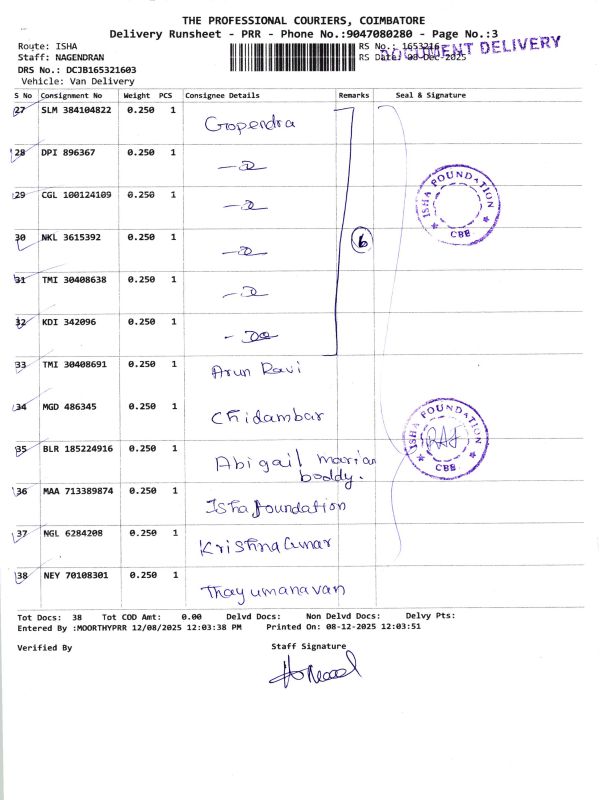 THE PROFESSIONAL COURIERS, COIMBATORE
Delivery Runsheet - PRR - Phone No.:9047080280 - Page No.:3
Route: ISHA
RS No.: 1653216
DOCUMENT DELIVERY
Staff: NAGENDRAN
RS Date: 08-Dec-2025
DRS No.: DCJB165321603
Vehicle: Van Delivery
S No Consignment No Weight PCS Consignee Details Remarks Seal & Signature
27 SLM 384104822 0.250 1 Gopendra
28 DPI 896367 0.250 1
29 CGL 100124109 0.250 1
30 NKL 3615392 0.250 1
6
31 TMI 30408638 0.250 1
32 KDI 342096 0.250 1
ISHA FOUNDATION
CBE
33 TMI 30408691 0.250 1 Arun Ravi
34 MGD 486345 0.250 1 Chidambar
35 BLR 185224916 0.250 1 Abigail marian
boddy.
36 MAA 713389874 0.250 1 Isha foundation
37 NGL 6284208 0.250 1 Krishna Kumar
38 NEY 70108301 0.250 1 Thayumanavan
ISHA FOUNDATION
RAJ
CBE
Tot Docs: 38 Tot COD Amt: 0.00 Delvd Docs: Non Delvd Docs: Delvy Pts:
Entered By :MOORTHYPRR 12/08/2025 12:03:38 PM Printed On: 08-12-2025 12:03:51
Verified By Staff Signature